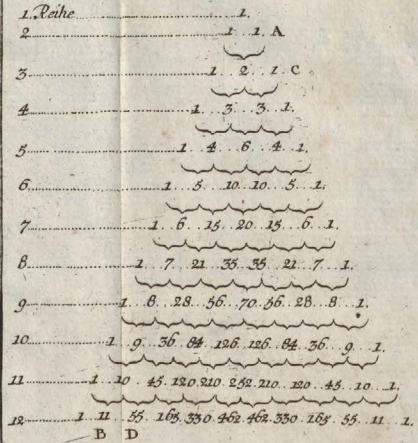 1. Reihe ........ 1.
2 ........ 1. 1. A
3 ........ 1. 2. 1. C
4 ........ 1. 3. 3. 1.
5 ........ 1. 4. 6. 4. 1.
6 ........ 1. 5. 10. 10. 5. 1.
7 ........ 1. 6. 15. 20. 15. 6. 1.
8 ........ 1. 7. 21. 35. 35. 21. 7. 1.
9 ........ 1. 8. 28. 56. 70. 56. 28. 8. 1.
10 ........ 1. 9. 36. 84. 126. 126. 84. 36. 9. 1.
11 ........ 1. 10. 45. 120. 210. 252. 210. 120. 45. 10. 1.
12 ........ 1. 11. 55. 165. 330. 462. 462. 330. 165. 55. 11. 1.
B D